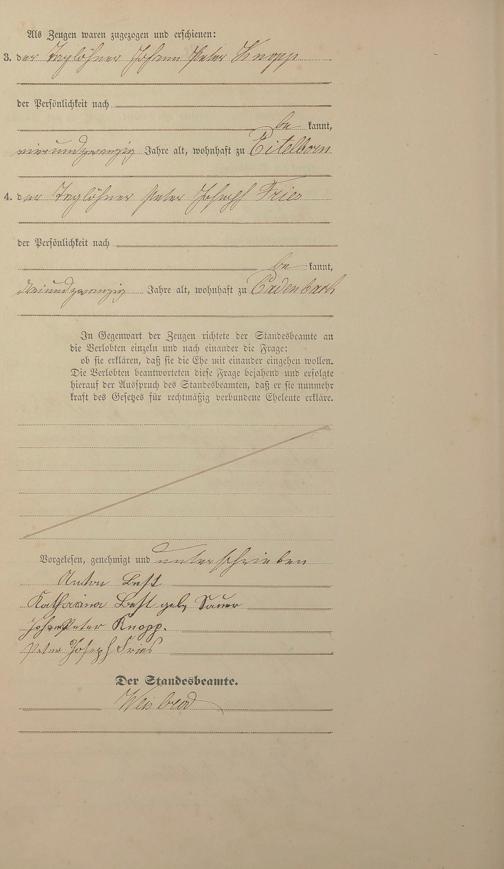 Als Zeugen waren zugezogen und erschienen:
3. der Taglöhner Johann Peter Knopp
der Persönlichkeit nach
be kannt,
vierundzwanzig Jahre alt, wohnhaft zu Eitelborn
4. der Taglöhner Peter Joseph Fries
der Persönlichkeit nach
be kannt,
Jahre alt, wohnhaft zu Cadenbach
In Gegenwart der Zeugen richtete der Standesbeamte an
die Verlobten einzeln und nach einander die Frage:
ob sie erklären, daß sie die Ehe mit einander eingehen wollen.
Die Verlobten beantworteten diese Frage bejahend und erfolgte
hierauf der Ausspruch des Standesbeamten, daß er sie nunmehr
kraft des Gesetzes für rechtmäßig verbundene Eheleute erkläre.
Vorgelesen, genehmigt und unterschrieben
Anton Best
Katharina Best geb. Sauer
Johann Peter Knopp.
Peter Joseph Fries
Der Standesbeamte.
Weisbrod